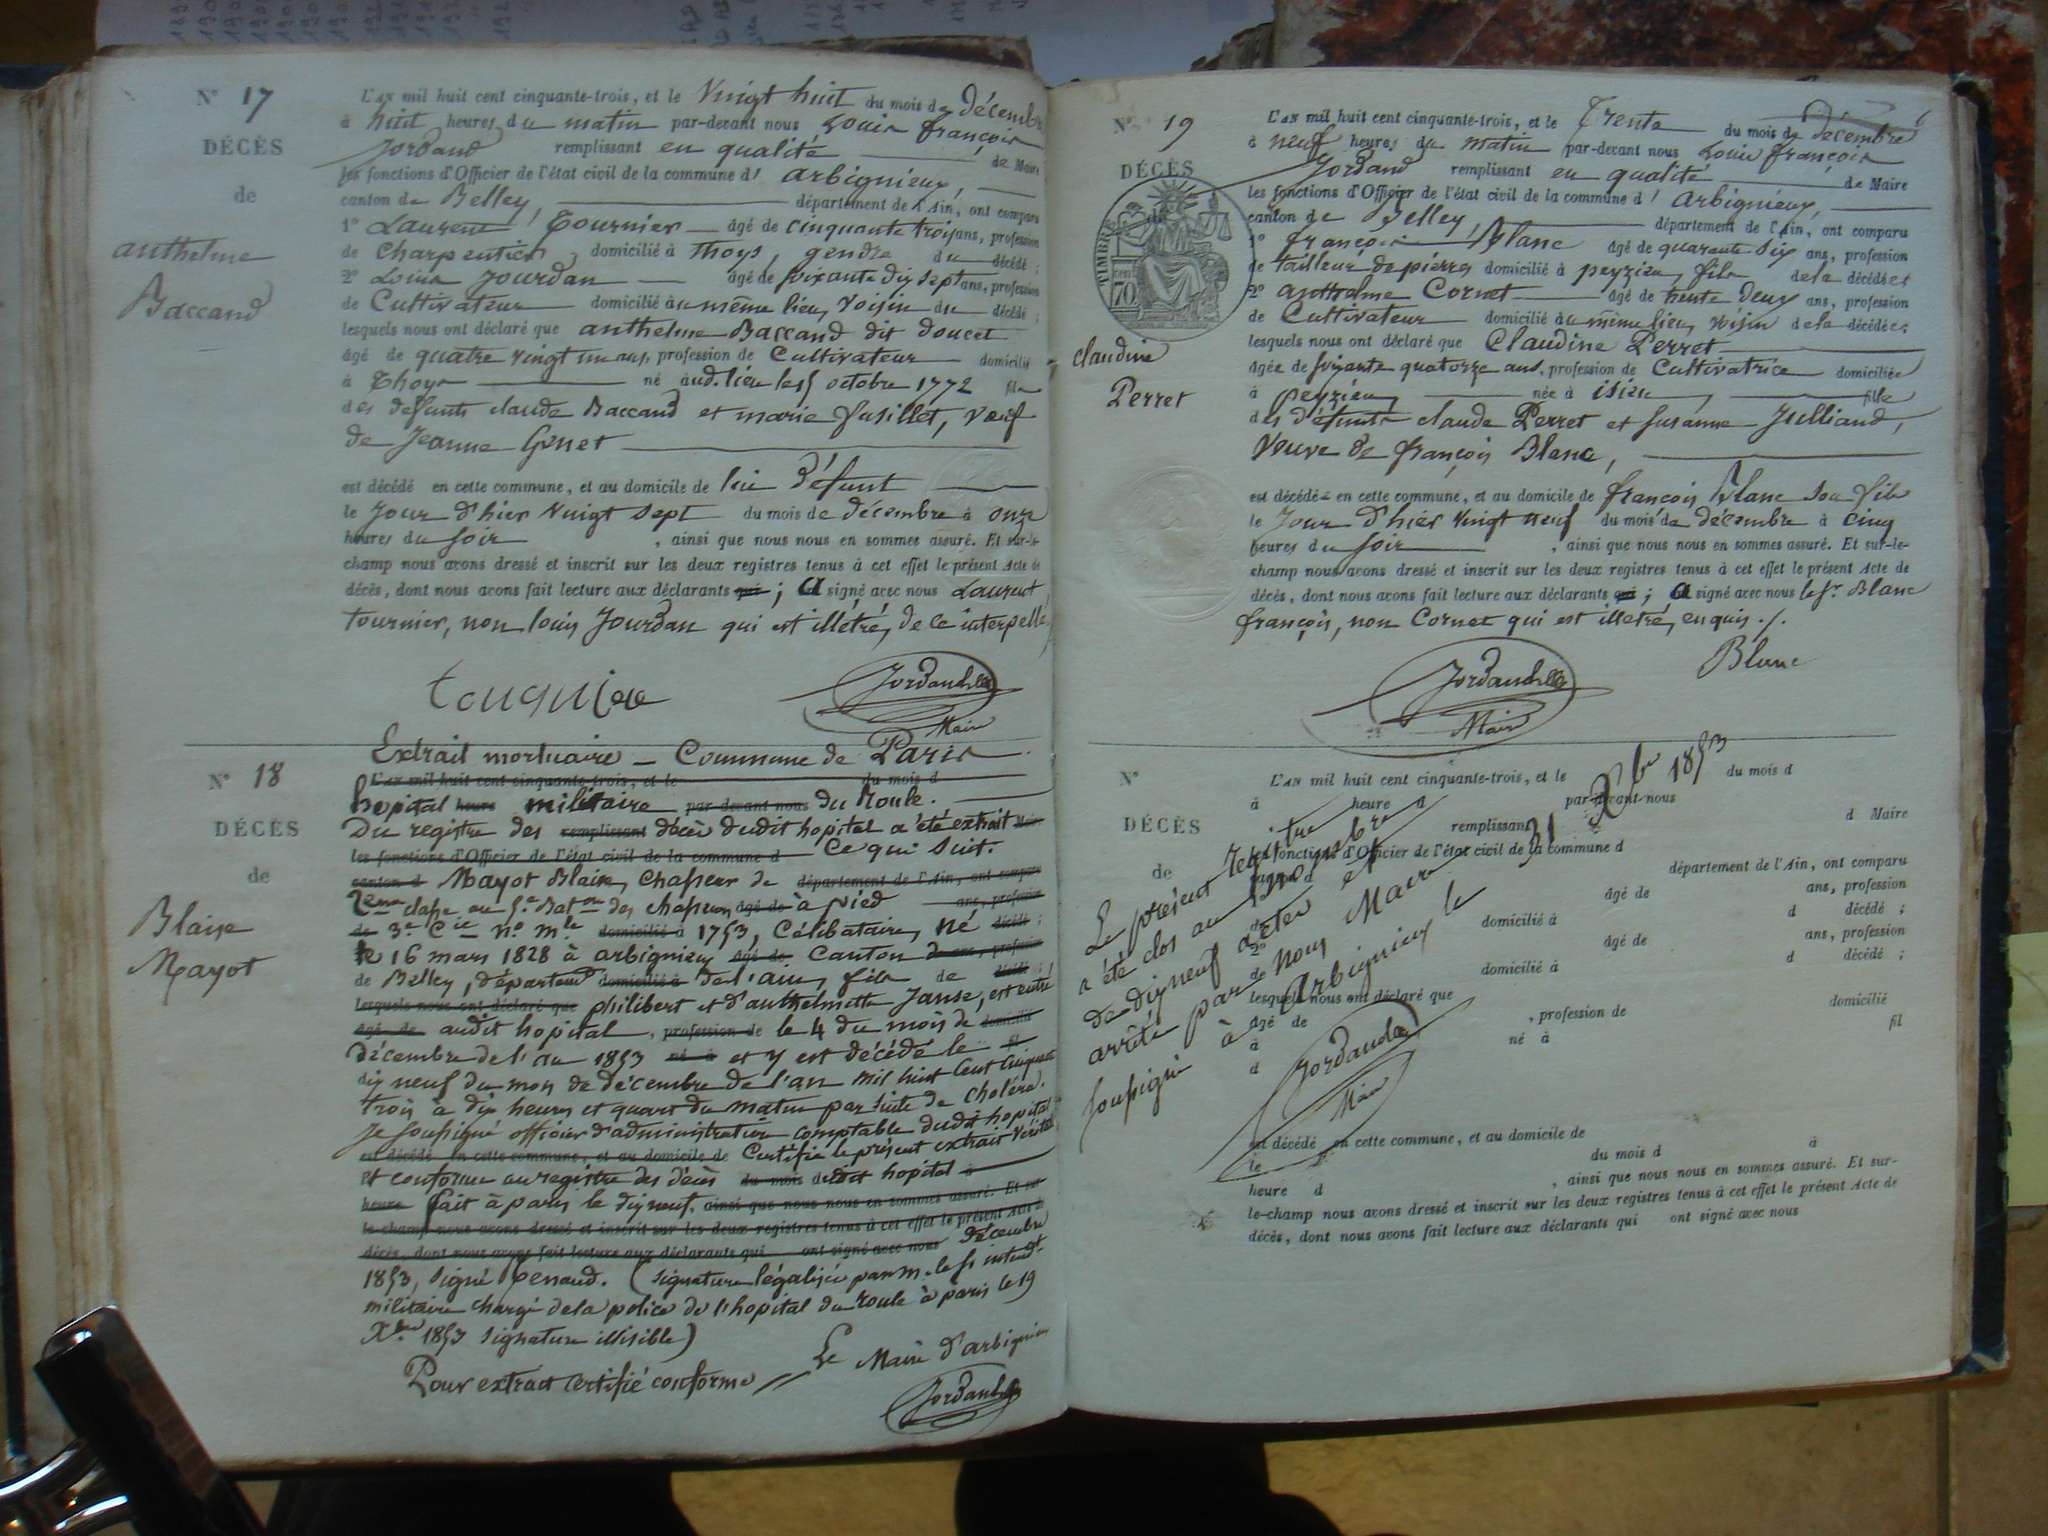 N° 17
DÉCÈS
de
anthelme
Baccand
L'AN mil huit cent cinquante-trois, et le Vingt huit du mois de décembre
à huit heures du matin par-devant nous Louis françois
Jordand remplissant en qualité de Maire
les fonctions d'Officier de l'état civil de la commune d' arbignieux,
canton de Belley, département de l'Ain, ont comparu
1° Laurent Tournier âgé de cinquante trois ans, profession
de Charpentier domicilié à Thoys, gendre du décédé;
2° Louis Jourdan âgé de soixante dix sept ans, profession
de Cultivateur domicilié au même lieu, Voisin du décédé;
lesquels nous ont déclaré que anthelme Baccand dit doucet
âgé de quatre vingt un ans, profession de Cultivateur domicilié
à Thoys né aud. lieu le 15 octobre 1772 fils
des défunts claude Baccand et marie fusillet, Vœuf
de Jeanne Genet
est décédé en cette commune, et au domicile de lui défunt
le Jour d'hier Vingt sept du mois de décembre à onze
heures du soir, ainsi que nous nous en sommes assuré. Et sur-le-
champ nous avons dressé et inscrit sur les deux registres tenus à cet effet le présent Acte de
décès, dont nous avons fait lecture aux déclarants qui; a signé avec nous Laurent
Tournier, non louis Jourdan qui est illétré, de ce interpellé
Jordand
Maire
N° 18
DÉCÈS
de
Blaise
Mayot
Extrait mortuaire – Commune de Paris
L'AN mil huit cent cinquante-trois, et le du mois d
hopital heure militaire par-devant nous du Roule.
Du registre des remplissant décès dudit hopital a été extrait Maire
les fonctions d'Officier de l'état civil de la commune d Ce qui suit.
canton d Mayot Blaise, Chasseur de département de l'Ain, ont comparu
2eme classe au 5e Baton des chasseurs âgé de à pied ans, profession
de 3e Cie No mle domicilié à 1753, Célibataire, né décédé;
le 16 mars 1828 à arbignieux âgé de Canton d ans, profession
de Belley, département domicilié à de l'ain, fils de décédé;
lesquels nous ont déclaré que philibert et d'anthelmette Janse, est entré
âgé de audit hopital, profession de le 4 du mois de domicilié
décembre de l'an 1853 né à et y est décédé le fil
dix neuf du mois de décembre de l'an mil huit cent cinquante
trois à dix heures et quart du matin par suite de choléra.
Je soussigné officier d'administration comptable dudit hopital
est décédé en cette commune, et au domicile de Certifie le présent extrait Véritable
et conforme au registre des décès du mois dudit hopital à
heure fait à paris le dix neuf, ainsi que nous nous en sommes assuré. Et sur-
le-champ nous avons dressé et inscrit sur les deux registres tenus à cet effet le présent Acte de
décès, dont nous avons fait lecture aux déclarants qui ont signé avec nous décembre
1853, signé Renaud. (signature légalisée par m. le s. intendt
militaire chargé de la police de l'hopital du roule à paris le 19
Xbre 1853 signature illisible)
Pour extrait certifié conforme Le Maire d'arbignieu
Jordand
N° 19
DÉCÈS
TIMBRE
70
claudine
Perret
L'AN mil huit cent cinquante-trois, et le Trente du mois de décembre
à neuf heures du matin par-devant nous Louis françois
Jordand remplissant en qualité de Maire
les fonctions d'Officier de l'état civil de la commune d' arbignieux,
canton de Belley, département de l'Ain, ont comparu
1° françois Blanc âgé de quarante six ans, profession
de tailleur de pierres domicilié à peyzieu, fils de la décédée;
2° anthelme Cornet âgé de trente deux ans, profession
de Cultivateur domicilié au même lieu, voisin de la décédée;
lesquels nous ont déclaré que Claudine Perret
âgée de soixante quatorze ans, profession de Cultivatrice domiciliée
à peyzieu, née à isieu, fille
des défunts claude Perret et susanne Julliand,
Veuve de françois Blanc,
est décédée en cette commune, et au domicile de françois Blanc son fils
le Jour d'hier Vingt neuf du mois de décembre à cinq
heures du soir, ainsi que nous nous en sommes assuré. Et sur-le-
champ nous avons dressé et inscrit sur les deux registres tenus à cet effet le présent Acte de
décès, dont nous avons fait lecture aux déclarants qui; a signé avec nous le Sr Blanc
françois, non Cornet qui est illetré, enquis ./.
Blanc
Jordand
Maire
N°
DÉCÈS
de
L'AN mil huit cent cinquante-trois, et le du mois d
à heure d par-devant nous
remplissant d Maire
les fonctions d'Officier de l'état civil de la commune d
canton d département de l'Ain, ont comparu
1° âgé de ans, profession
de domicilié à d décédé;
2° âgé de ans, profession
de domicilié à d décédé;
lesquels nous ont déclaré que
âgé de, profession de domicilié
à né à fil
d
est décédé en cette commune, et au domicile de
le du mois d à
heure d, ainsi que nous nous en sommes assuré. Et sur-
le-champ nous avons dressé et inscrit sur les deux registres tenus à cet effet le présent Acte de
décès, dont nous avons fait lecture aux déclarants qui ont signé avec nous
Le présent registre
a été clos au nombre
de dix neuf actes et
arrêté par nous Maire
soussigné à Arbignieux le 31 Xbre 1853
Jordand
Maire